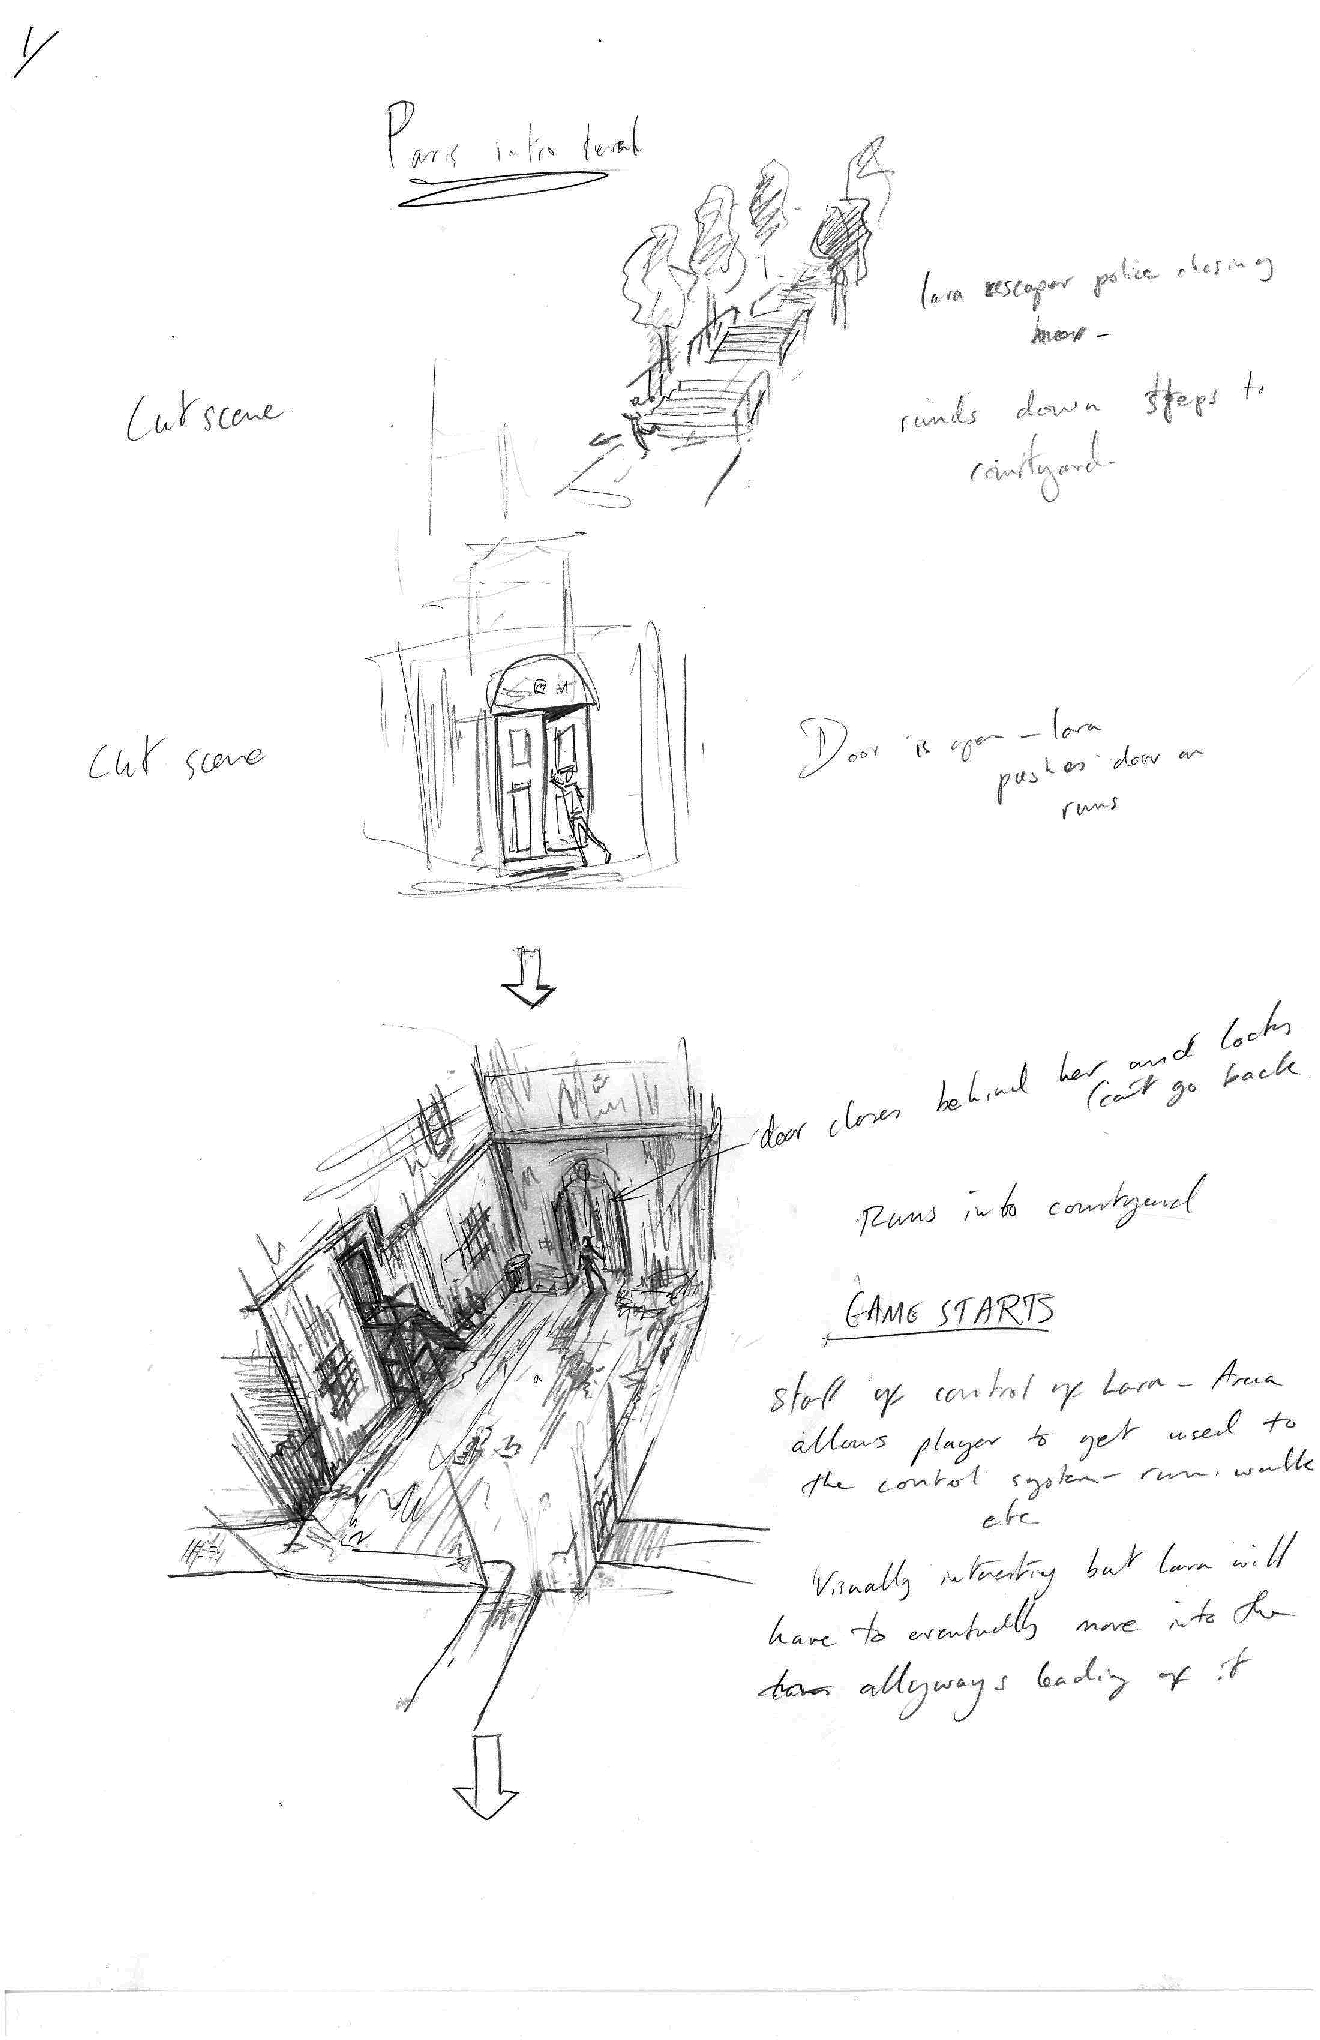 1/
Paris intro level
Lara escapes police chasing
her -
Cut scene
runds down steps to
courtyard.
Cut scene
Door is open - Lara
pushes door an
runs
door closes behind her and locks
(can't go back
Runs into courtyard
GAME STARTS
Start of control of Lara - Area
allows player to get used to
the control system - run, walk
etc
Visually interesting but Lara will
have to eventually move into the
allyways leading of it